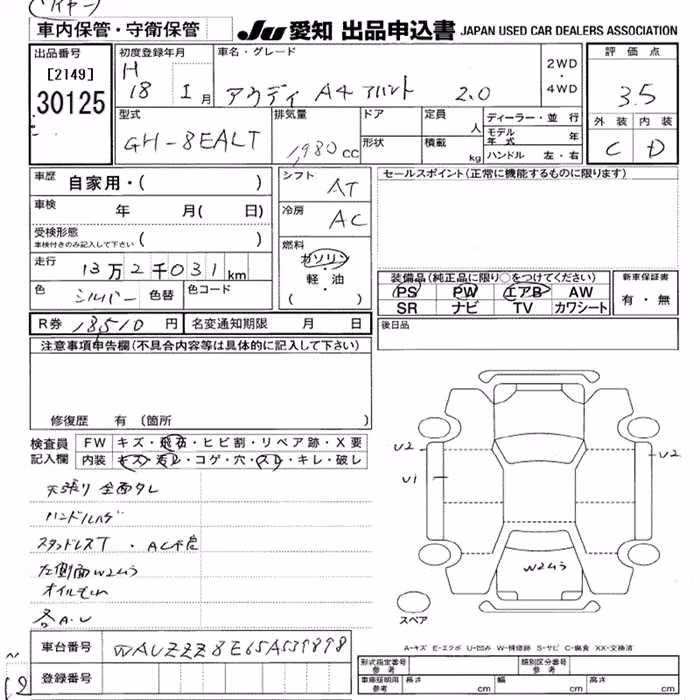 車内保管・守衛保管
JU 愛知 出品申込書 JAPAN USED CAR DEALERS ASSOCIATION
出品番号 初度登録年月 車名・グレード 2WD・4WD 評価点
[2149]
30125
H 18 1月 アウディ A4 アバント 2.0 3.5
型式 排気量 ドア 定員 人 ディーラー・並行 外装 内装
GH-8EALT 1,980cc 形状 積載 kg モデル年式 年 C D
ハンドル 左・右
車歴 自家用・( ) シフト AT セールスポイント(正常に機能するものに限ります)
車検 年 月( 日) 冷房 AC
受検形態 ( )
車検付きのみ記入して下さい
走行 13万2千031km 燃料 ガソリン・軽・油 ( )
装備品(純正品に限り○をつけてください) 新車保証書
PS PW エアB AW 有・無
SR ナビ TV カワシート
色 シルバー 色替 色コード
R券 18,510円 名変通知期限 月 日 後日品
注意事項申告欄(不具合内容等は具体的に記入して下さい)
修復歴 有 (箇所 )
検査員記入欄 FW キズ・飛石・ヒビ割・リペア跡・X要
内装 キズ・汚レ・コゲ・穴・スレ・キレ・破レ
U2 U2
U1
天張り 全面タレ
ハンドルハゲ
スタッドレスT・AC不良
左側面W2ムラ W2ムラ
オイルモレ
各A.U
スペア
A-キズ E-エクボ U-凹み W-補修跡 S-サビ C-腐食 XX-交換済
車台番号 WAUZZZ8E65A539898
登録番号
型式指定番号 参考 類別区分番号 参考
車庫証明用 参考 長さ cm 幅 cm 高さ cm